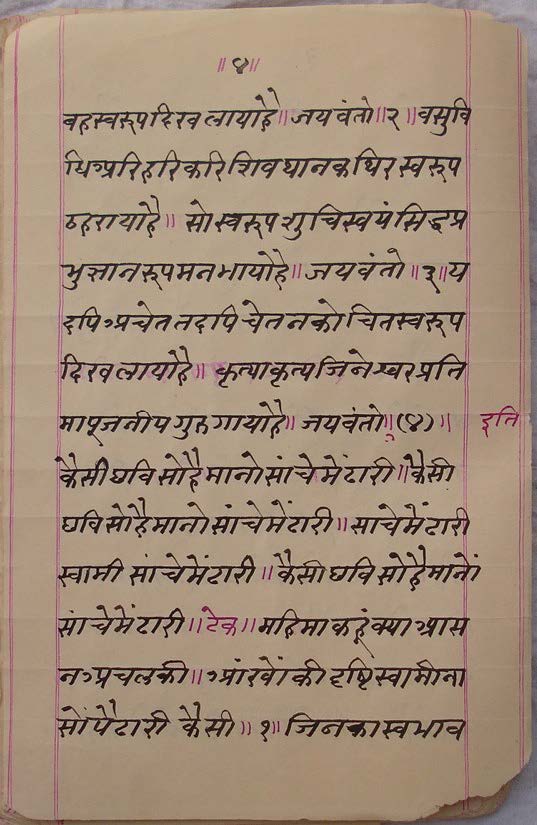 ॥४॥
वहस्वरूपदिखलायोहै॥जयवंतो॥२॥वसुवि
धिअरिहरिकरिशिवथानकथिरस्वरूप
ठहरायोहै॥ सोस्वरूपशुचिस्वयंसिद्धप्र
भुज्ञानरूपमनभायोहै॥जयवंतो॥३॥य
दपिअचेततदपिचेतनकोचितस्वरूप
दिखलायोहै॥ कृत्याकृत्यजिनेस्वरप्रति
मापूजनीपगुरुगायोहै॥ जयवंतो॥(४)॥ इति
कैसीछविसोहैमानोसांचेमेंटारी॥कैसी
छविसोहैमानोसांचेमेंटारी॥साचेमेंटारी
स्वामीसांचेमेंटारी॥कैसीछविसोहैमानों
सांचेमेंटारी॥टेक॥महिमाकहूंक्याआस
नअचलकी॥आंखोंकीदृष्टिस्वामीना
सोंपैटारी कैसी॥१॥जिनकास्वभाव